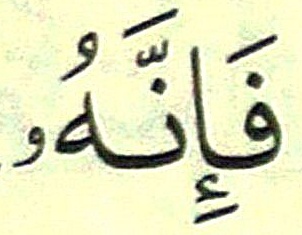 فَإِنَّهُۥ